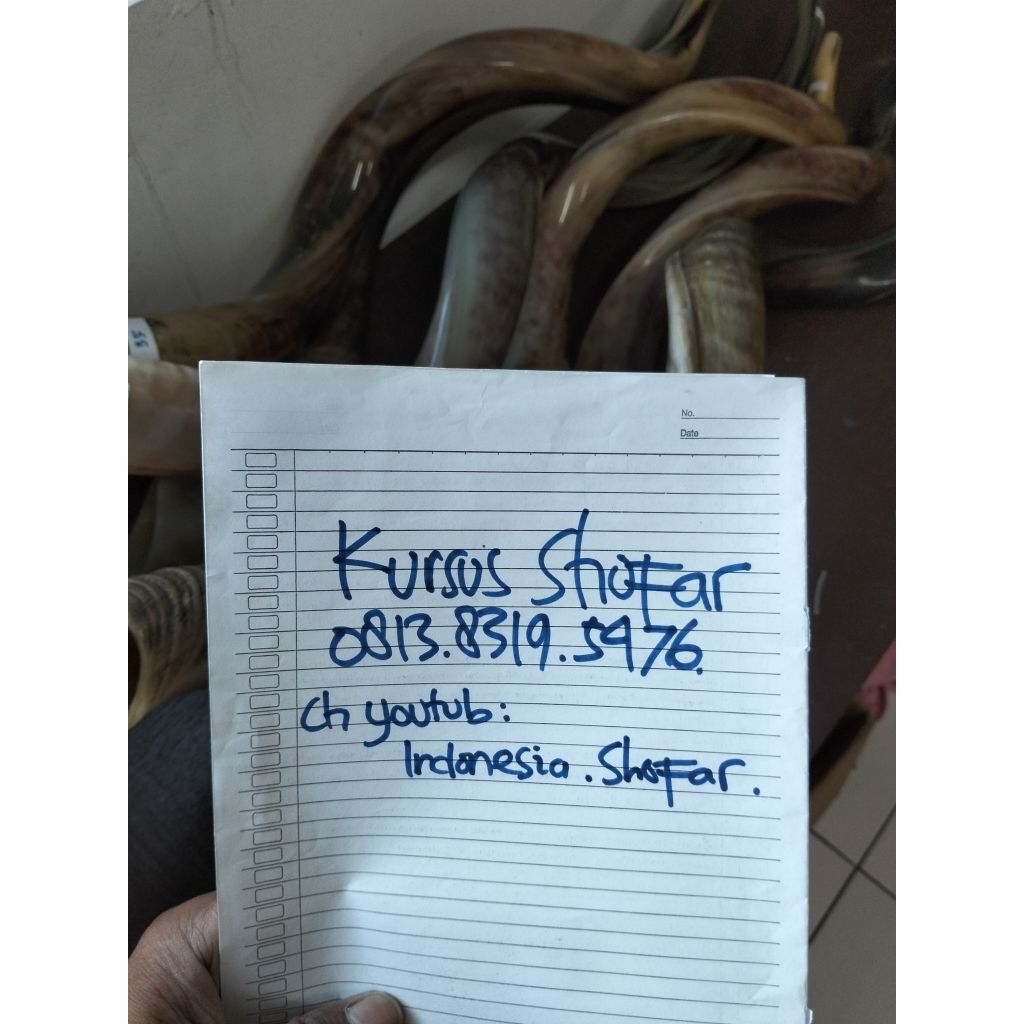 No.
Date
Kursus Shofar
0813.8319.5976.
Ch youtub:
Indonesia. Shofar.